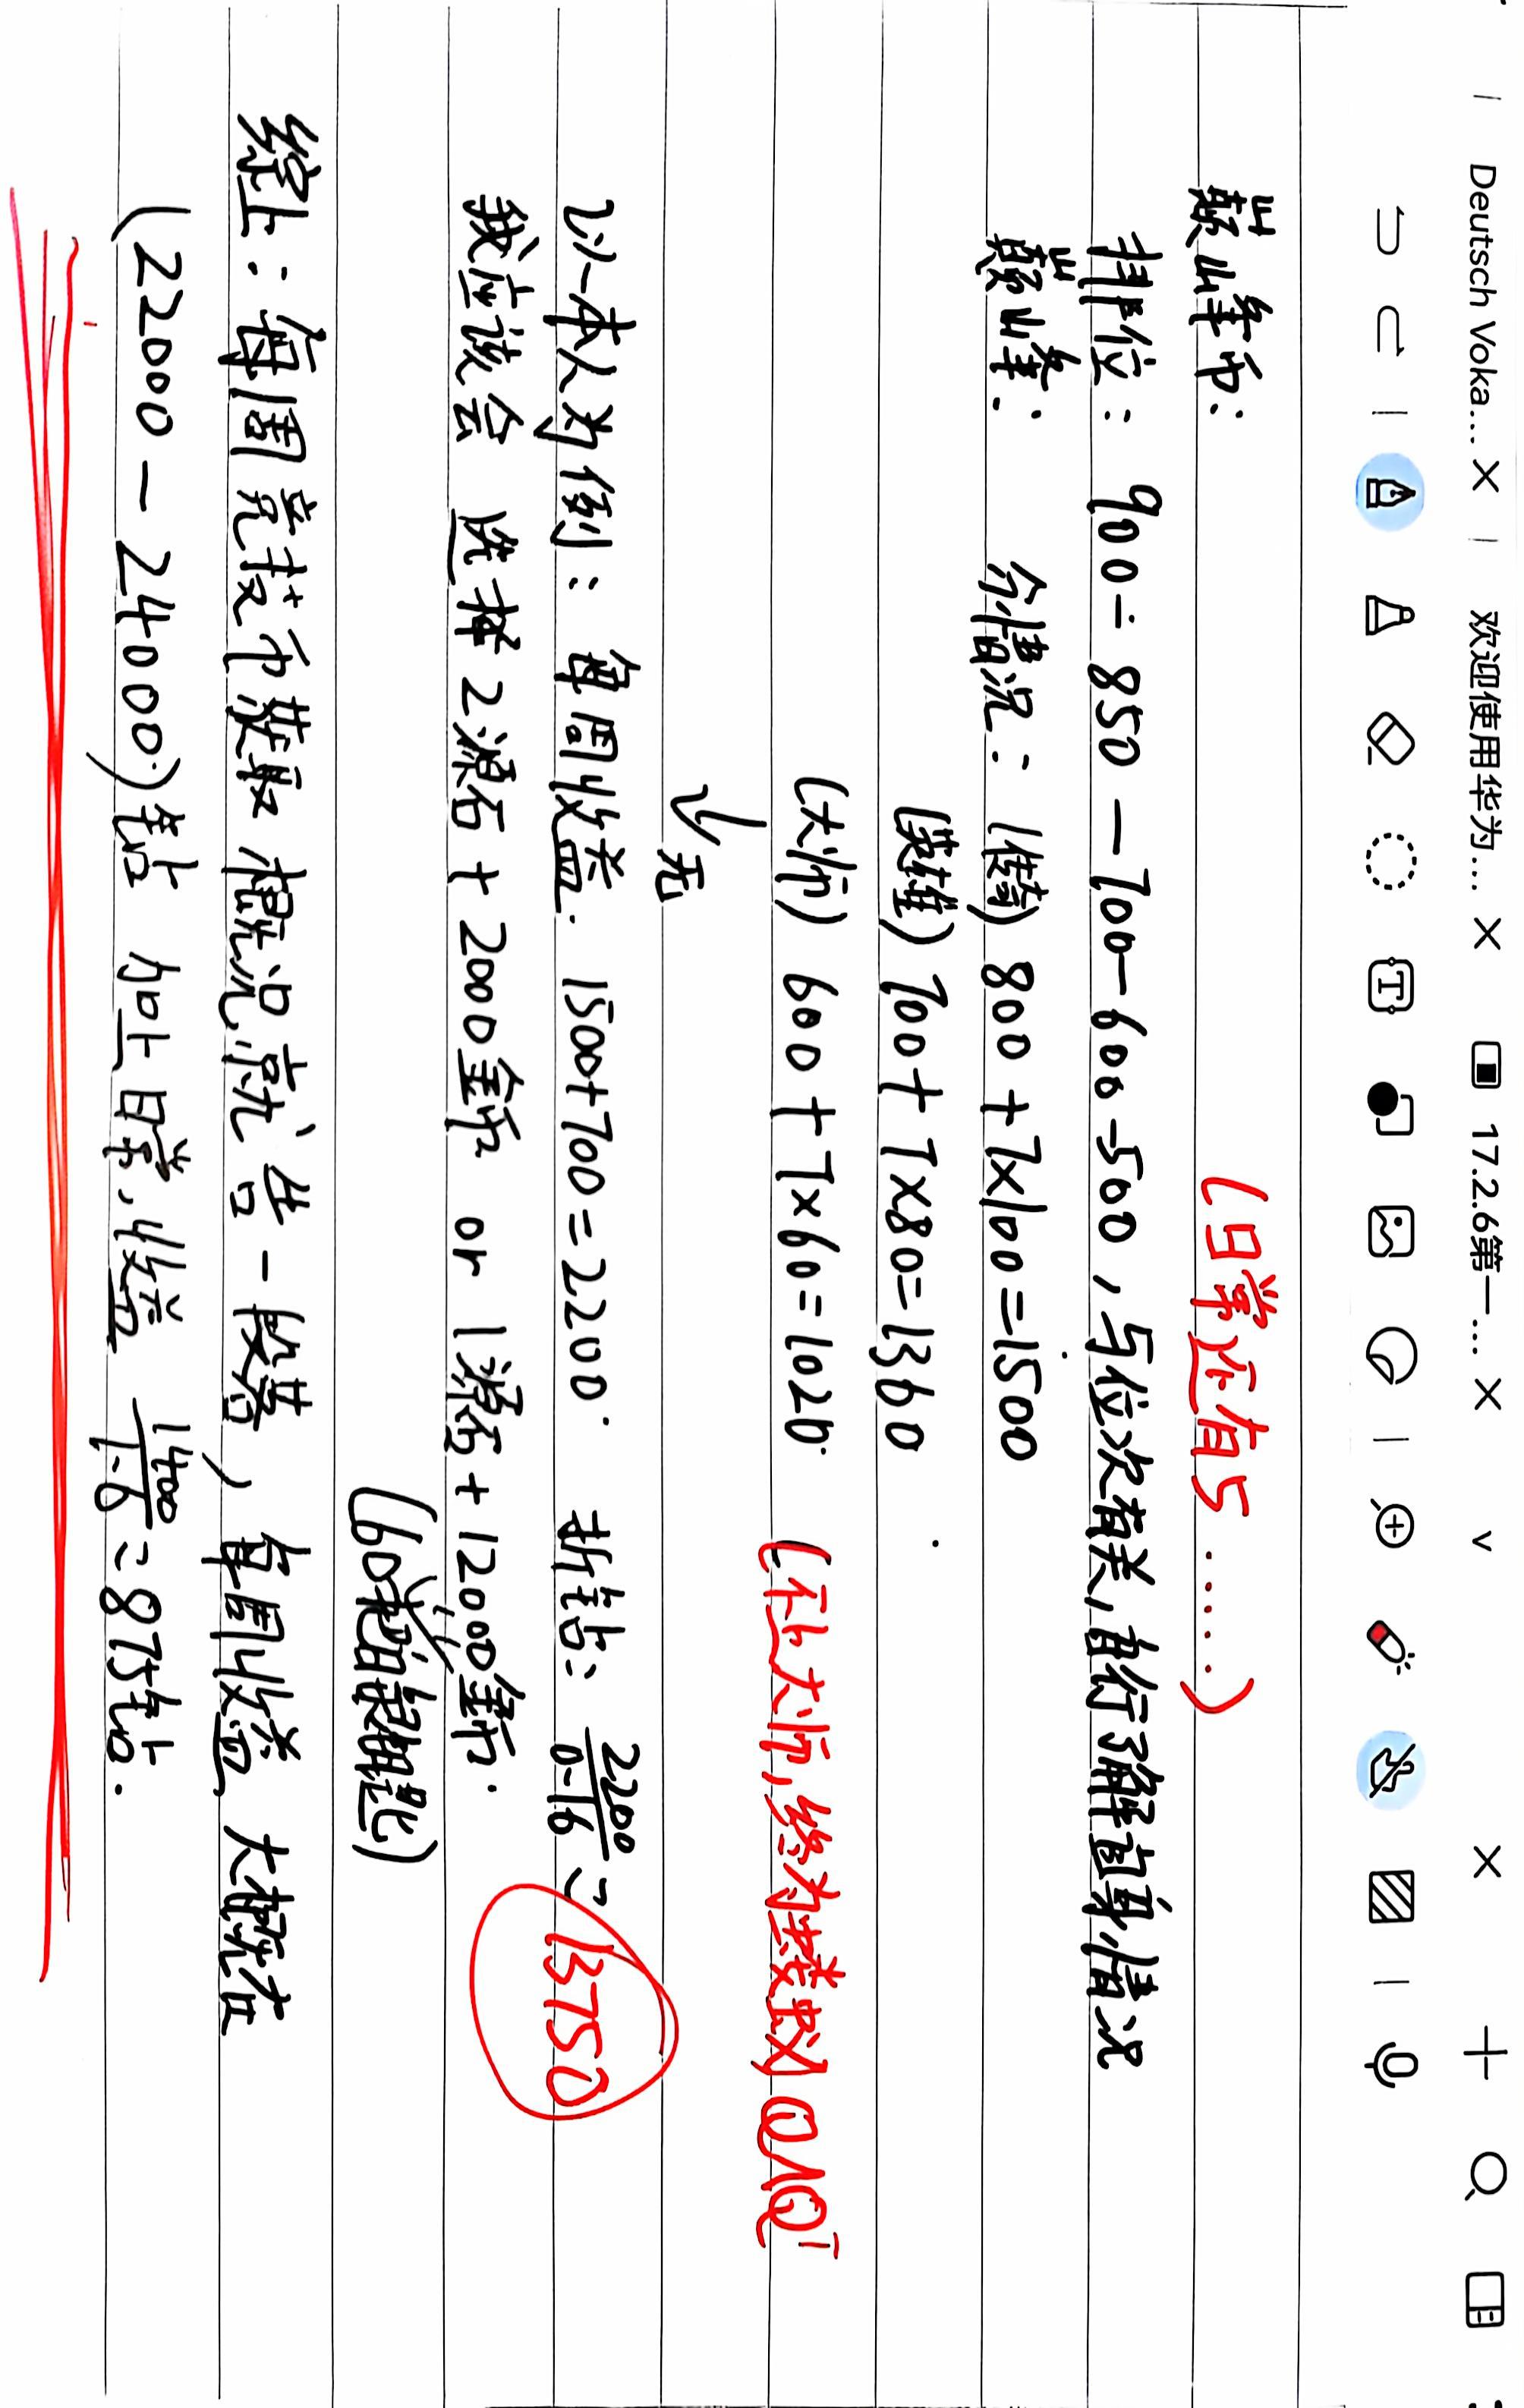 Deutsch Voka... × 欢迎使用华为... × 17.2.6第一... ×
巅峰币：
(日常还有5 ......)
排位： 900-850-700-600-500，与位次有关，自行了解自身情况
巅峰： 分情况： (传奇) 800+7×100=1500
(英雄) 700+7×80=1360
(大师) 600+7×60=1020
(不上大师，终为蝼蚁 QAQ)
↓无
以一本人为例： 每周收益. 1500+700=2200. 折钻: 2200/0.16 = 13750
我应该会 选择2源石+2000金币 or 1源石+12000金币.
(60把白银钥匙)
综上：每周竞技币获取概况就告一段落，每周收益，大概在
(22000-24000)钻 加上日常，收益 1400/1.6 = 875钻.